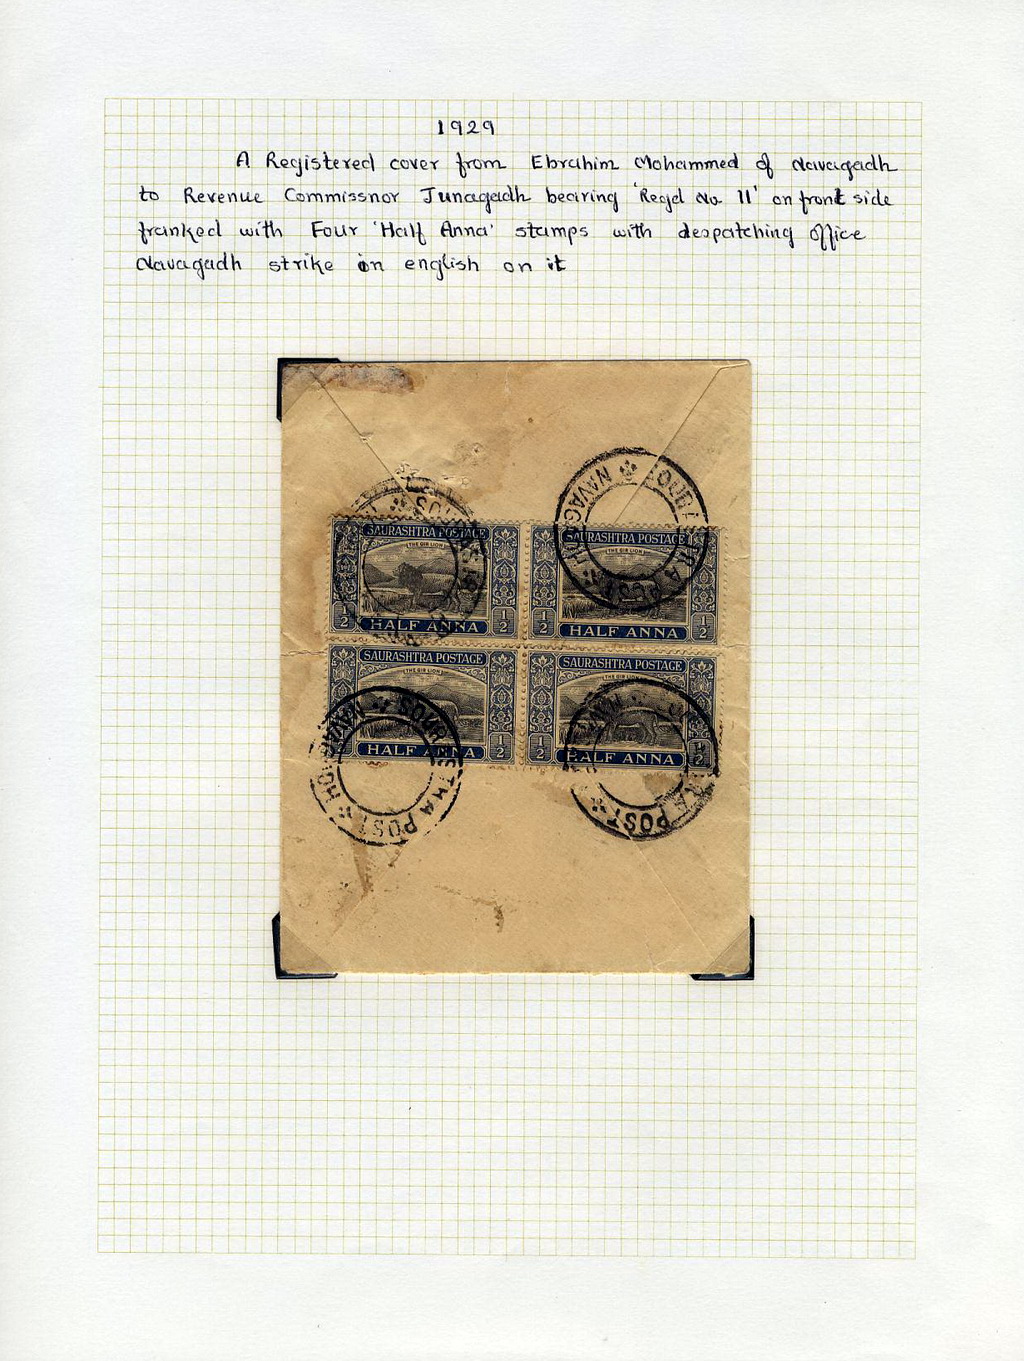 1929
A Registered cover from Ebrahim Mohammed of Navagadh
to Revenue Commissnor Junagadh bearing 'Regd No 11' on front side
franked with Four 'Half Anna' stamps with despatching office
Navagadh strike in english on it
SAURASHTRA POSTAGE
THE GIR LION
1/2 HALF ANNA 1/2
SAURASHTRA POSTAGE
THE GIR LION
1/2 HALF ANNA 1/2
SOURASTRA POST
SAURASHTRA POSTAGE
THE GIR LION
HALF ANNA 1/2
SOURASTRA POST
SAURASHTRA POSTAGE
THE GIR LION
1/2 HALF ANNA 1/2
POST